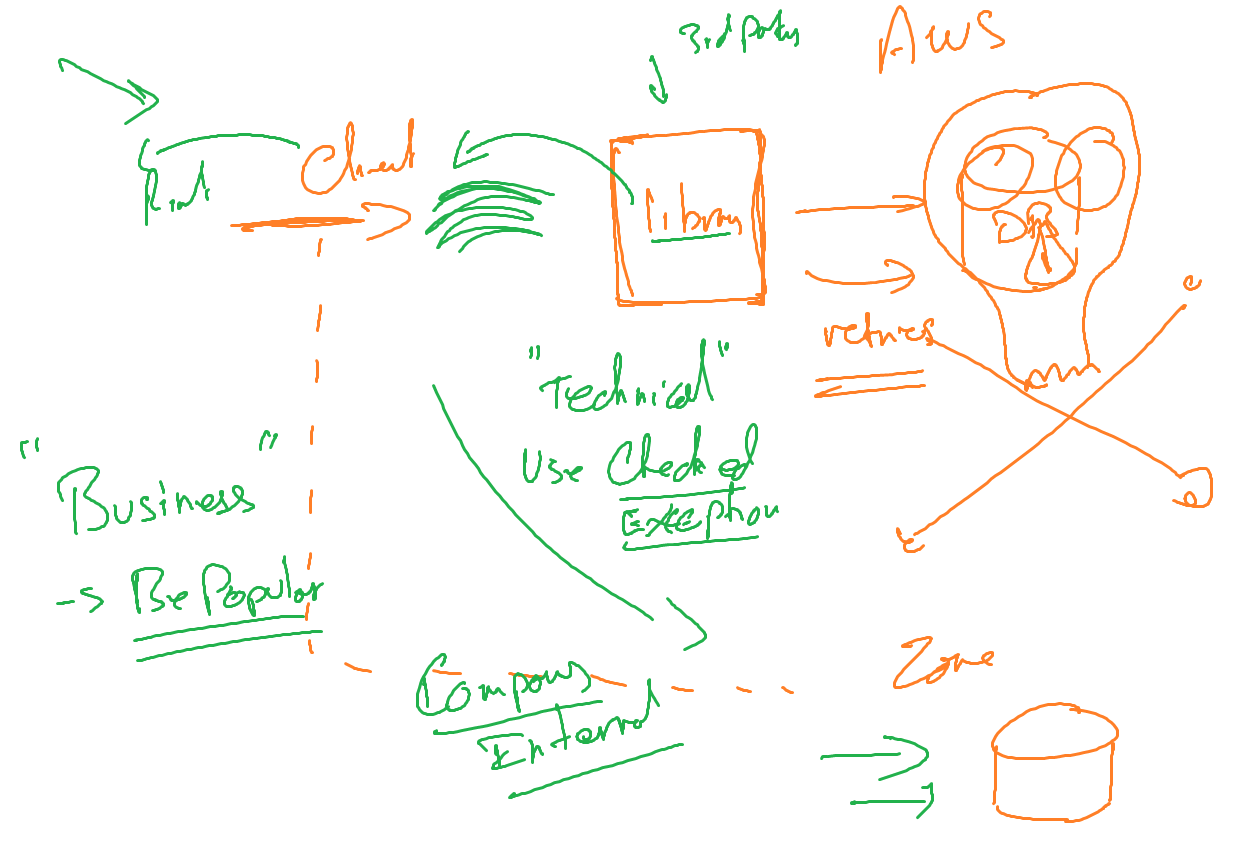 3rd Party
AWS
Client
library
DB
retries
"Technical"
Use Checked
Exception
"Business"
-> Be Popular
Zone
Internal